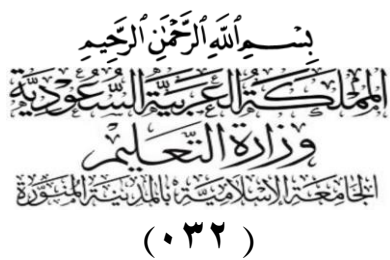 بِسْمِ ٱللَّهِ ٱلرَّحْمَٰنِ ٱلرَّحِيمِ
المملكة العربية السعودية
وزارة التعليم
الجامعة الإسلامية بالمدينة المنورة
(٠٣٢)